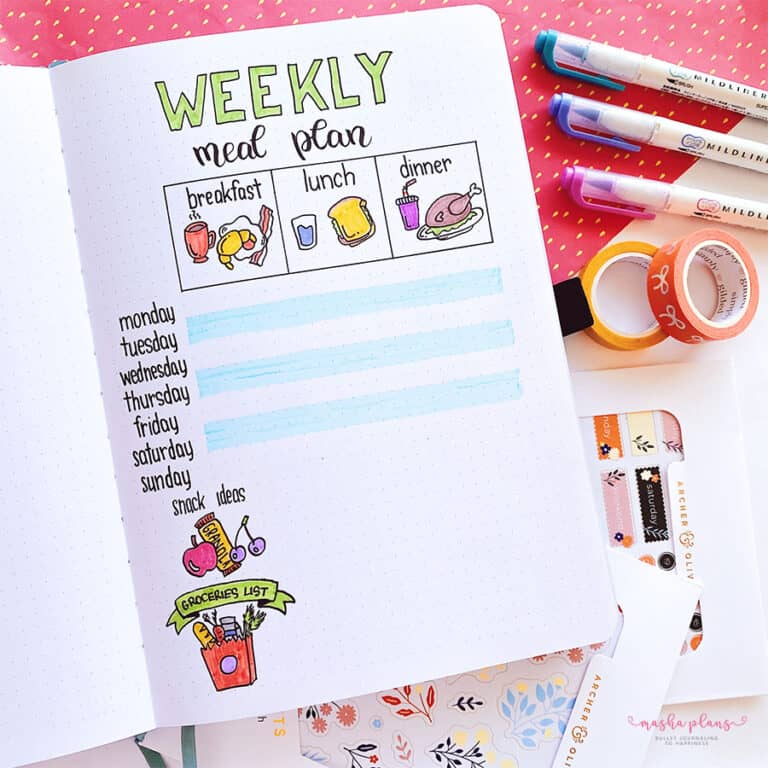 WEEKLY
meal plan
breakfast lunch dinner
monday
tuesday
wednesday
thursday
friday
saturday
sunday
snack ideas
GRANOLA
GROCERIES LIST
MILDLINER
MILDLINER
MILDLINER
simply gilded
saturday
ARCHER & OLIV
ARCHER & OLIV
masha plans
BULLET JOURNALING
TO HAPPINESS